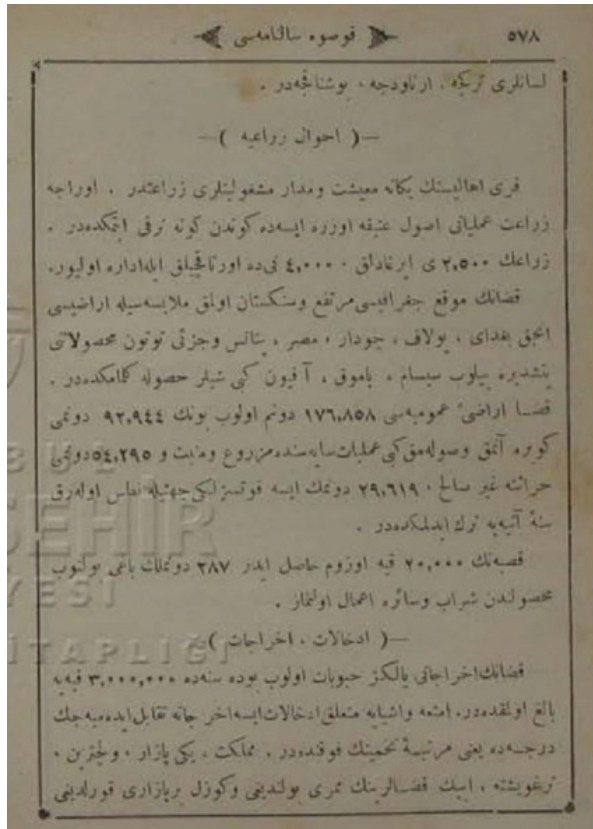 ٥٧٨
قوصوه سالنامه‌سی
لسانلری ترکجه ، ارناودجه ، بوشناقجه‌در .
—( احوال زراعیه )—
قری اهالیسنك یکانه معیشت ومدار مشغولیتلری زراعتدر . اوراجه
زراعت عملیاتی اصول عتیقه اوزره ایسه‌ده کوندن کونه ترقی ایتمکده‌در .
زراعك ٢,٥٠٠ ی ایرغادلق ، ٤,٠٠٠ نی‌ده اورتاقجیلق ایله‌اداره اولیور.
قضانك موقع جغرافیسی‌مرتفع وسنکستان اولمق ملابسه‌سیله اراضیسی
انجق بغدای ، یولاف ، جودار ، مصر ، پتاتس وجزئی توتون محصولاتی
یتشدیره بیلوب سیسام ، پاموق ، آفیون کبی شیلر حصوله کلمامکده‌در .
قضا اراضیٔ عمومیه‌سی ١٧٦,٨٥٨ دونم اولوب بونك ٩٢,٩٤٤ دونمی
کوبره آتمق وصوله‌مق‌کبی‌عملیات‌سایه‌سنده‌مزروع ومنبت و ٥٤,٢٩٥دونمی
حراثته غیر صالح ، ٢٩,٦١٩ دونمك ایسه قوتسزلکی‌جهتیله‌نطاس اوله‌رق
سنهٔ آتیه‌یه ترك ایدلمکده‌در .
قصبه‌نك ٢٠,٠٠٠ قیه اوزوم حاصل ایدر ٢٨٧ دونملك باغی بولنوب
محصولندن شراب وسائره اعمال اولنماز .
—( ادخالات ، اخراجات )—
قضانك‌اخراجاتی یالکز حبوبات اولوب بوده سنه‌ده ٣,٠٠٠,٠٠٠ قیه‌یه
بالغ اولقده‌در. امتعه واشیایه متعلق‌ادخالات‌ایسه‌اخر جاته تقابل‌ایده‌میه‌جك
درجه‌ده یعنی مرتبهٔ تخمینك فوقنده‌در . مملکت ، یکی پازار ، ولچترین ،
ترغویشته ، ایپك قضالرینك ممری بولندیغی وکوزل برپازاری قورلدیغی